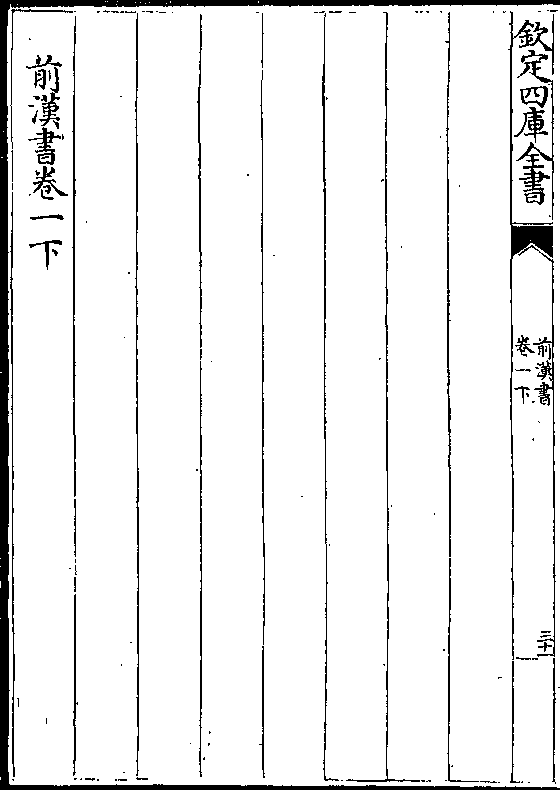 欽定四庫全書
前漢書
卷一下
三十一
前漢書卷一下